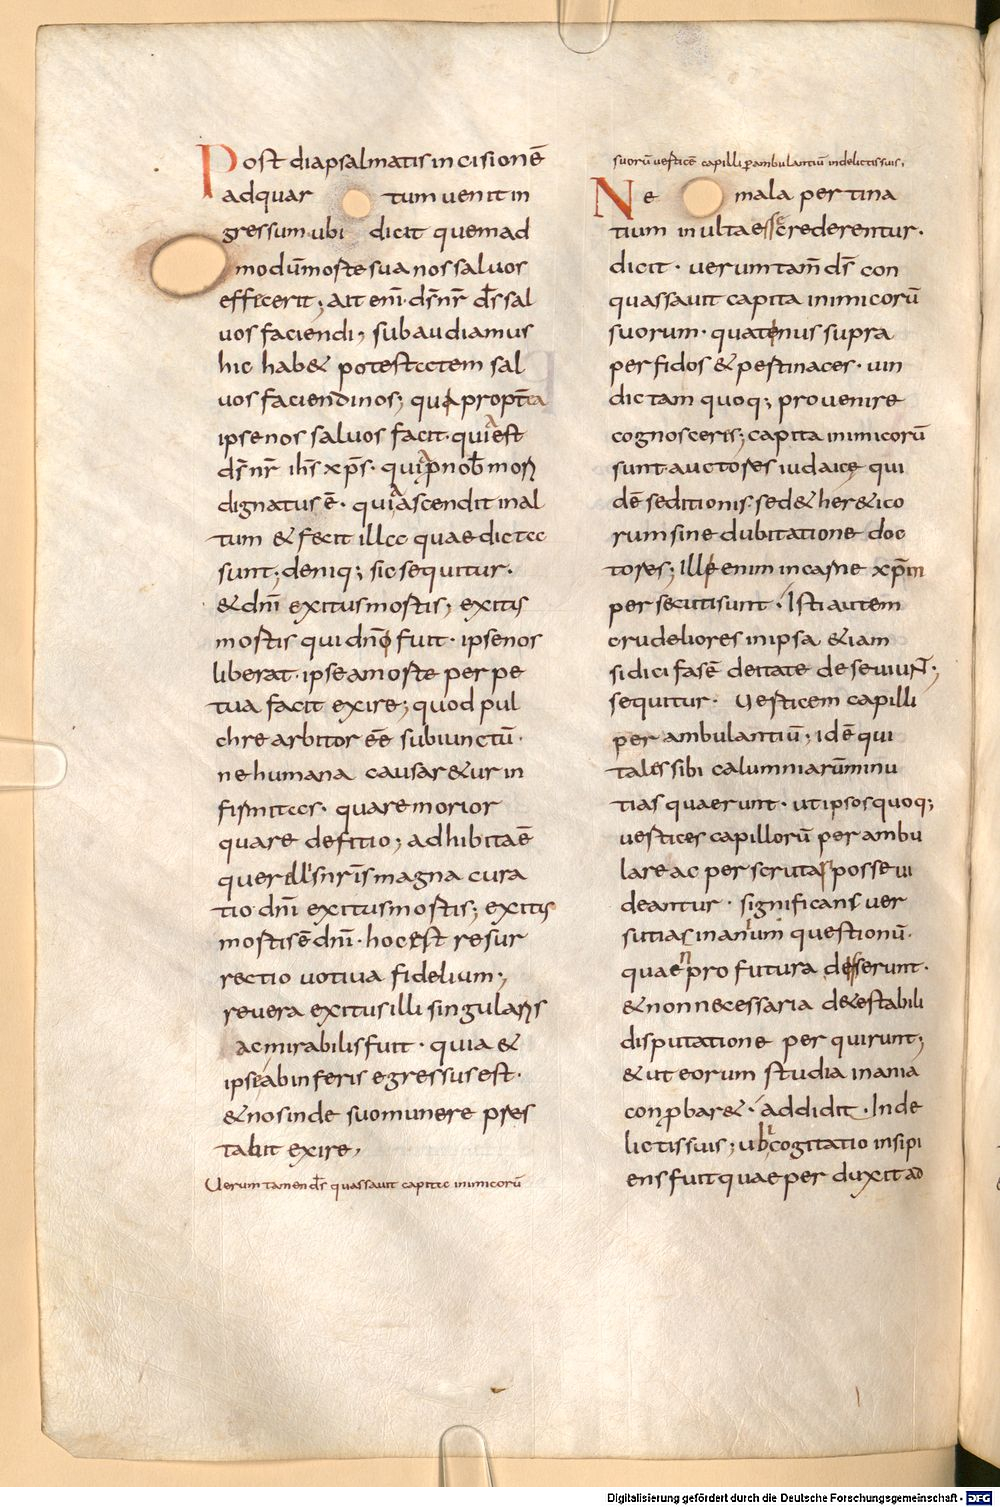 Post diapsalmatis incisionē
adquar tum uenit in
gressum· ubi dicit quemad
modū moste sua nos saluos
effecerit; ait eni· d̄s nr̄ d̄s sal
uos faciendi; subaudiamus
hic hab& potestatem sal
uos faciendi nos; quia propt̄ea
ipse nos saluos facit· quia est
d̄s nr̄ ih̄s xp̄s· qui a p̄ nob̄ mori
dignatus ē· qui ascendit in al
tum & fecit illa quae dicta
sunt; deniq; sic sequitur·
& dn̄i exitus mortis; exitus
mortis qui dn̄o fuit· ipse nos
liberat· ipse a morte per pe
tua facit exire; quod pul
chre arbitor eē subiunctū·
ne humana causar&ur in
firmitas· quare morior
quare deficio; adhibita ē
querellis nr̄is magna cura
tio dn̄i exitus mortis; exitus
mortis ē dn̄i· hoc est resur
rectio uotiua fidelium;
reuera exitus illi singularis
ac mirabilis fuit· quia &
ipse ab inferis egressus est·
& nos inde suo munere pres
tabit exire,
Uerum tamen d̄s quassauit capita inimicorū
suorū uerticē capilli ꝑambulantiū in delictis suis;
Ne mala pertina
tium inulta esse crederentur·
dicit· uerum tam̄ d̄s con
quassauit capita inimicorū
suorum· quatenus supra
perfidos & pertinaces· uin
dictam quoq; prouenire
cognosceres; capita inimicorū
sunt· auctores iudaice qui
dē seditionis· sed & her&ico
rum sine dubitatione doc
tores; Illi enim in carne xp̄m
persecuti sunt· Isti autem
crudeliores in ipsa &iam
si dici fas ē deitate deseuiunt;
sequitur· Uerticem capilli
perambulantiū; id ē qui
tales sibi calumniarū minu
tias quaerunt· ut ipsos quoq;
uertices capillorū perambu
lare ac perscrutari posse ui
deantur· significans uer
sutias inanium questionū·
quae n̄ profutura desserunt·
& non necessaria detestabili
disputatione perquirunt;
& ut eorum studia inania
conꝓbar&· addidit· In de
lictis suis; ubi cogitatio insipi
ens fuit quae perduxit ad
Digitalisierung gefördert durch die Deutsche Forschungsgemeinschaft - DFG